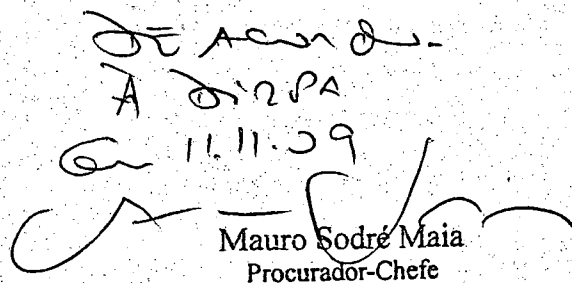 DE Acordo.
À DIRPA
Em 11.11.09
Mauro Sodré Maia
Procurador-Chefe